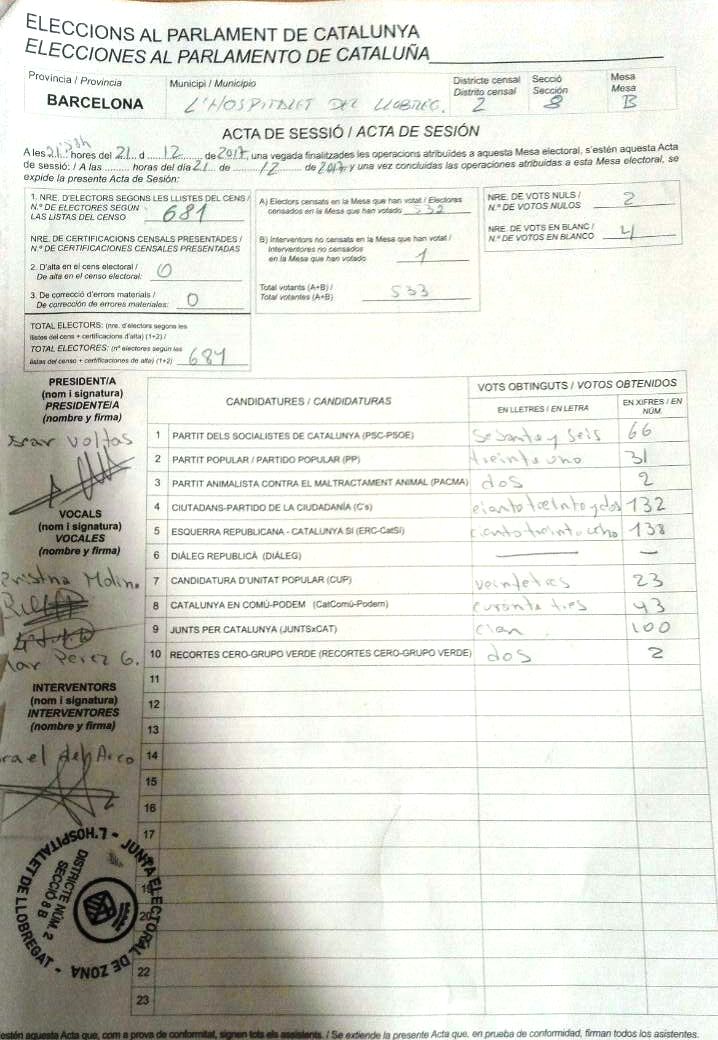 ELECCIONS AL PARLAMENT DE CATALUNYA
ELECCIONES AL PARLAMENTO DE CATALUÑA
Provincia / Provincia
BARCELONA
Municipi / Municipio
L'HOSPITALET DEL LLOBREG.
Districte censal
Distrito censal
2
Secció
Sección
8
Mesa
Mesa
B
ACTA DE SESSIÓ / ACTA DE SESIÓN
A les 21:38h hores del 21 d 12 de 2017, una vegada finalitzades les operacions atribuïdes a aquesta Mesa electoral, s'estén aquesta Acta
de sessió: / A las horas del día 21 de 12 de 2017 y una vez concluidas las operaciones atribuidas a esta Mesa electoral, se
expide la presente Acta de Sesión:
1. NRE. D'ELECTORS SEGONS LES LLISTES DEL CENS /
N.º DE ELECTORES SEGÚN
LAS LISTAS DEL CENSO 681
NRE. DE CERTIFICACIONS CENSALS PRESENTADES /
N.º DE CERTIFICACIONES CENSALES PRESENTADAS
2. D'alta en el cens electoral /
De alta en el censo electoral: 0
3. De correcció d'errors materials /
De corrección de errores materiales: 0
TOTAL ELECTORS: (nre. d'electors segons les
llistes del cens + certificacions d'alta) (1+2) /
TOTAL ELECTORES: (nº electores según las
listas del censo + certificaciones de alta) (1+2) 681
A) Electors censats en la Mesa que han votat / Electores
censados en la Mesa que han votado 532
B) Interventors no censats en la Mesa que han votat /
Interventores no censados
en la Mesa que han votado 1
Total votants (A+B) /
Total votantes (A+B) 533
NRE. DE VOTS NULS /
N.º DE VOTOS NULOS 2
NRE. DE VOTS EN BLANC /
N.º DE VOTOS EN BLANCO 4
PRESIDENT/A
(nom i signatura)
PRESIDENTE/A
(nombre y firma)
Voltas
VOCALS
(nom i signatura)
VOCALES
(nombre y firma)
Molin
Perez G.
INTERVENTORS
(nom i signatura)
INTERVENTORES
(nombre y firma)
del Arco
CANDIDATURES / CANDIDATURAS
VOTS OBTINGUTS / VOTOS OBTENIDOS
EN LLETRES / EN LETRA
EN XIFRES / EN
NÚM.
1 PARTIT DELS SOCIALISTES DE CATALUNYA (PSC-PSOE) sesenta y seis 66
2 PARTIT POPULAR / PARTIDO POPULAR (PP) treinta uno 31
3 PARTIT ANIMALISTA CONTRA EL MALTRACTAMENT ANIMAL (PACMA) dos 2
4 CIUTADANS-PARTIDO DE LA CIUDADANÍA (C's) ciento treinta y dos 132
5 ESQUERRA REPUBLICANA - CATALUNYA SÍ (ERC-CatSí) ciento treinta ocho 138
6 DIÀLEG REPUBLICÀ (DIÀLEG) — —
7 CANDIDATURA D'UNITAT POPULAR (CUP) veintetres 23
8 CATALUNYA EN COMÚ-PODEM (CatComú-Podem) curante tres 43
9 JUNTS PER CATALUNYA (JUNTSxCAT) cien 100
10 RECORTES CERO-GRUPO VERDE (RECORTES CERO-GRUPO VERDE) dos 2
11
12
13
14
15
16
17
19
20
22
23
JUNTA ELECTORAL DE ZONA - L'HOSPITALET DE LLOBREGAT -
DISTRICTE NÚM. 2
SECCIÓ 8 B
estén aquesta Acta que, com a prova de conformitat, signen tots els assistents. / Se extiende la presente Acta que, en prueba de conformidad, firman todos los asistentes.